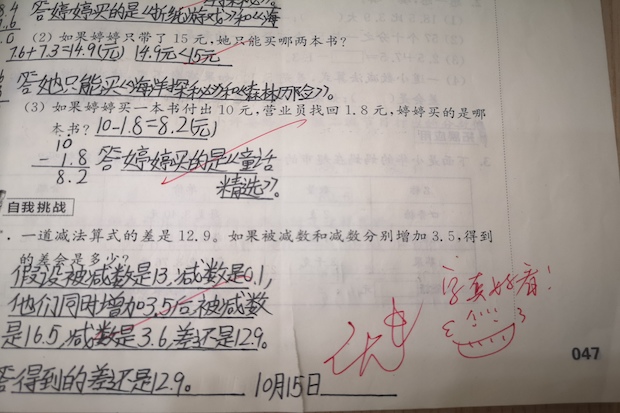 答婷婷买的是《折纸游戏》和《海
(2) 如果婷婷只带了 15 元,她只能买哪两本书?
7.6+7.3=14.9(元) 14.9元<15元
答她只能买《海洋探秘》和《森林历险》。
(3) 如果婷婷买一本书付出 10 元,营业员找回 1.8 元,婷婷买的是哪
本书? 10-1.8=8.2(元)
10
- 1.8 答婷婷买的是《童话
8.2 精选》。
自我挑战
一道减法算式的差是 12.9。如果被减数和减数分别增加 3.5,得到
的差会是多少?
假设被减数是13,减数是0.1,
他们同时增加3.5后,被减数
是16.5,减数是3.6,差还是12.9。
答得到的差还是12.9。 10月15日
字真好看!
047